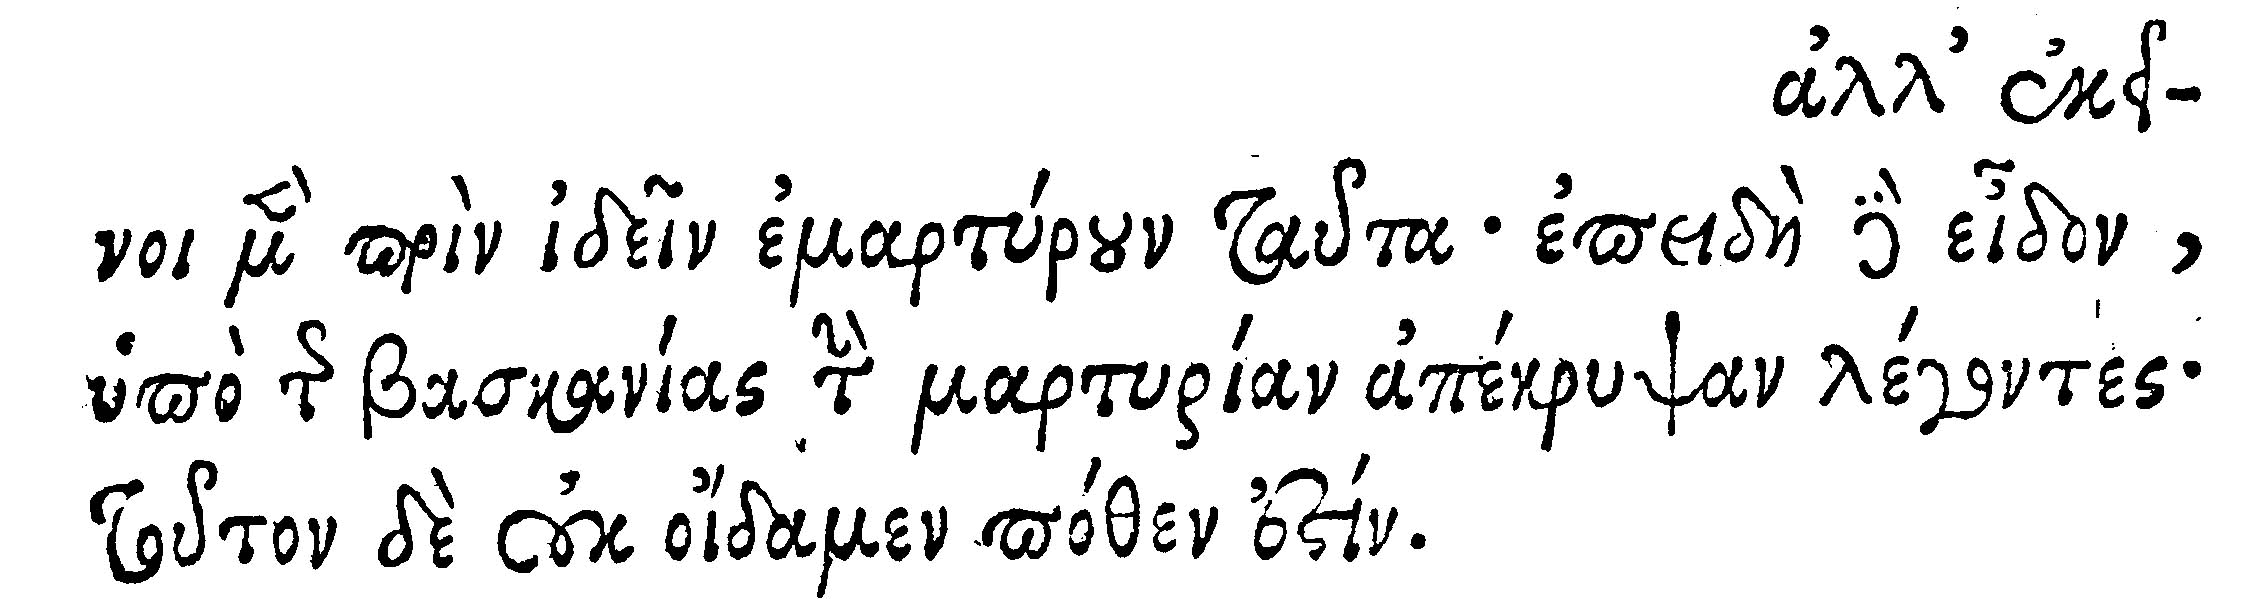 ἀλλ’ ἐκεῖ-
νοι μὲν πρὶν ἰδεῖν ἐμαρτύρουν ταῦτα· ἐπειδὴ δὲ εἶδον,
ὑπὸ τῆς βασκανίας τὴν μαρτυρίαν ἀπέκρυψαν λέγοντες·
τοῦτον δὲ οὐκ οἴδαμεν πόθεν ἐστίν.